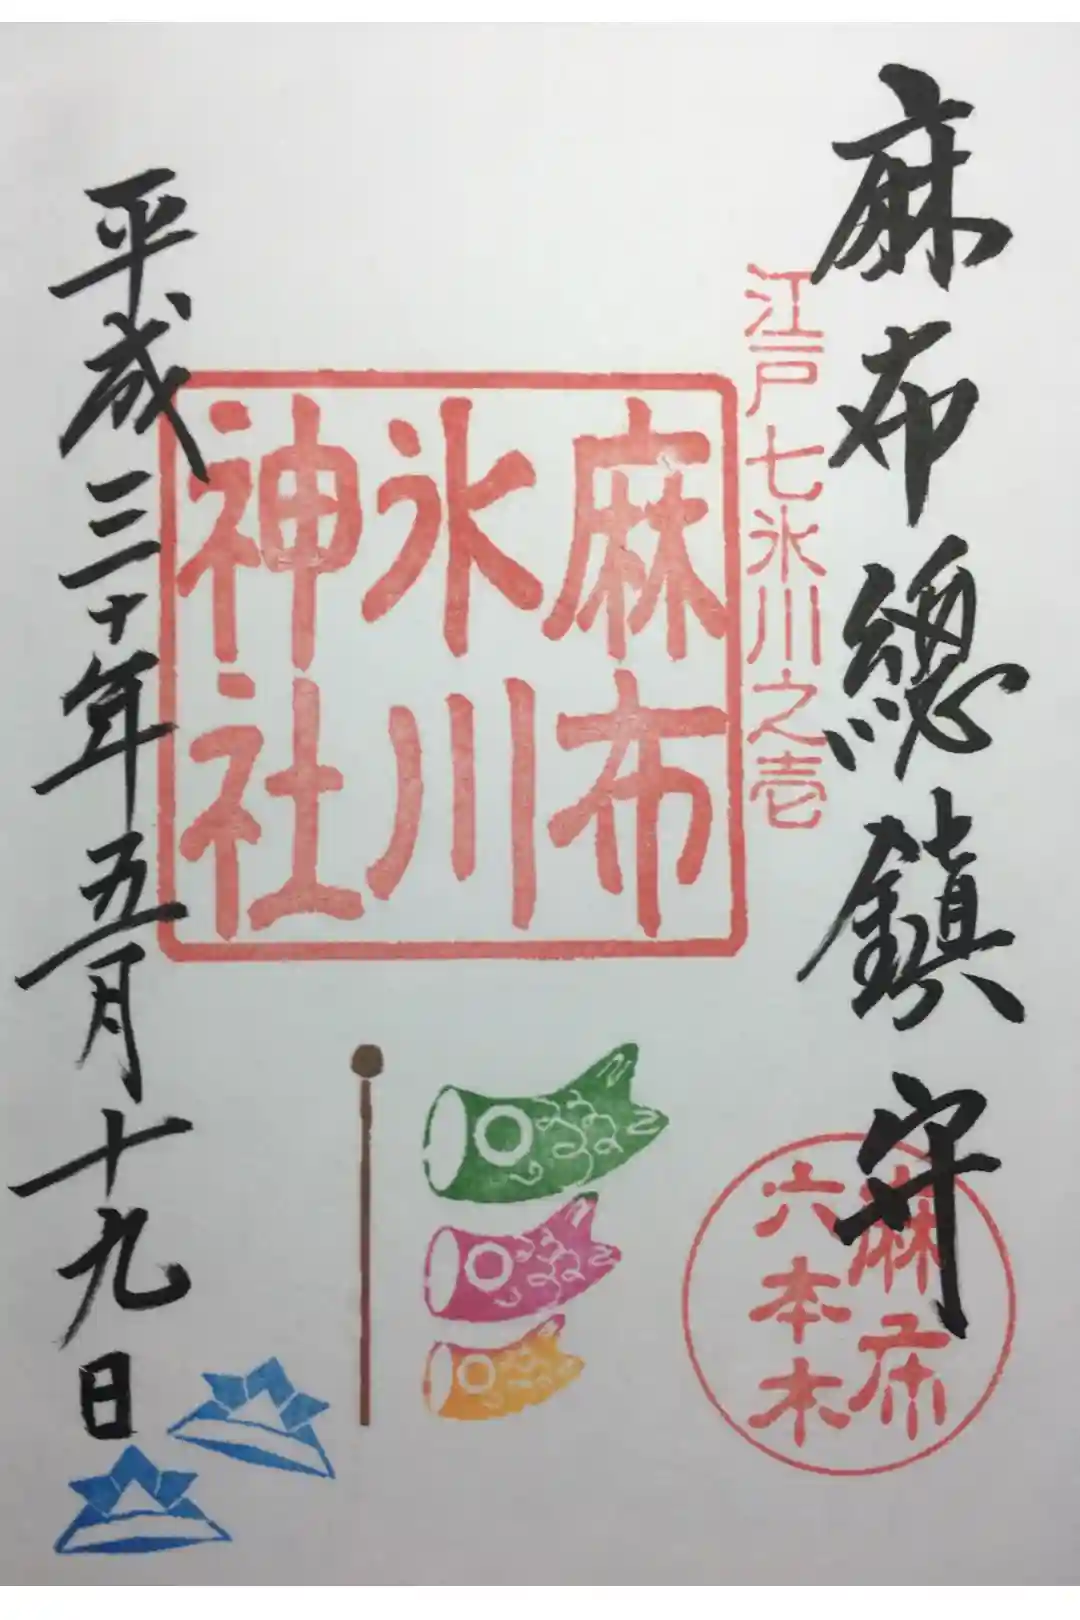 麻布總鎮守
江戸七氷川之壱
麻布
氷川
神社
平成三十年五月十九日
麻布
六本木